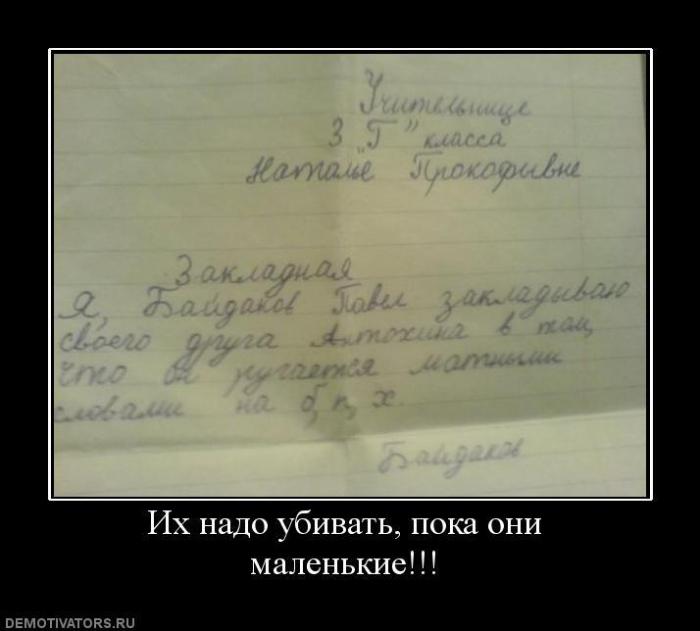 Учительнице
3 „Г" класса
Наталье Прокофьивне
Закладная
Я, Байдаков Павел закладываю
своего друга Антохина в том,
что он ругается матными
словами на б, п, х.
Байдаков
Их надо убивать, пока они
маленькие!!!
DEMOTIVATORS.RU